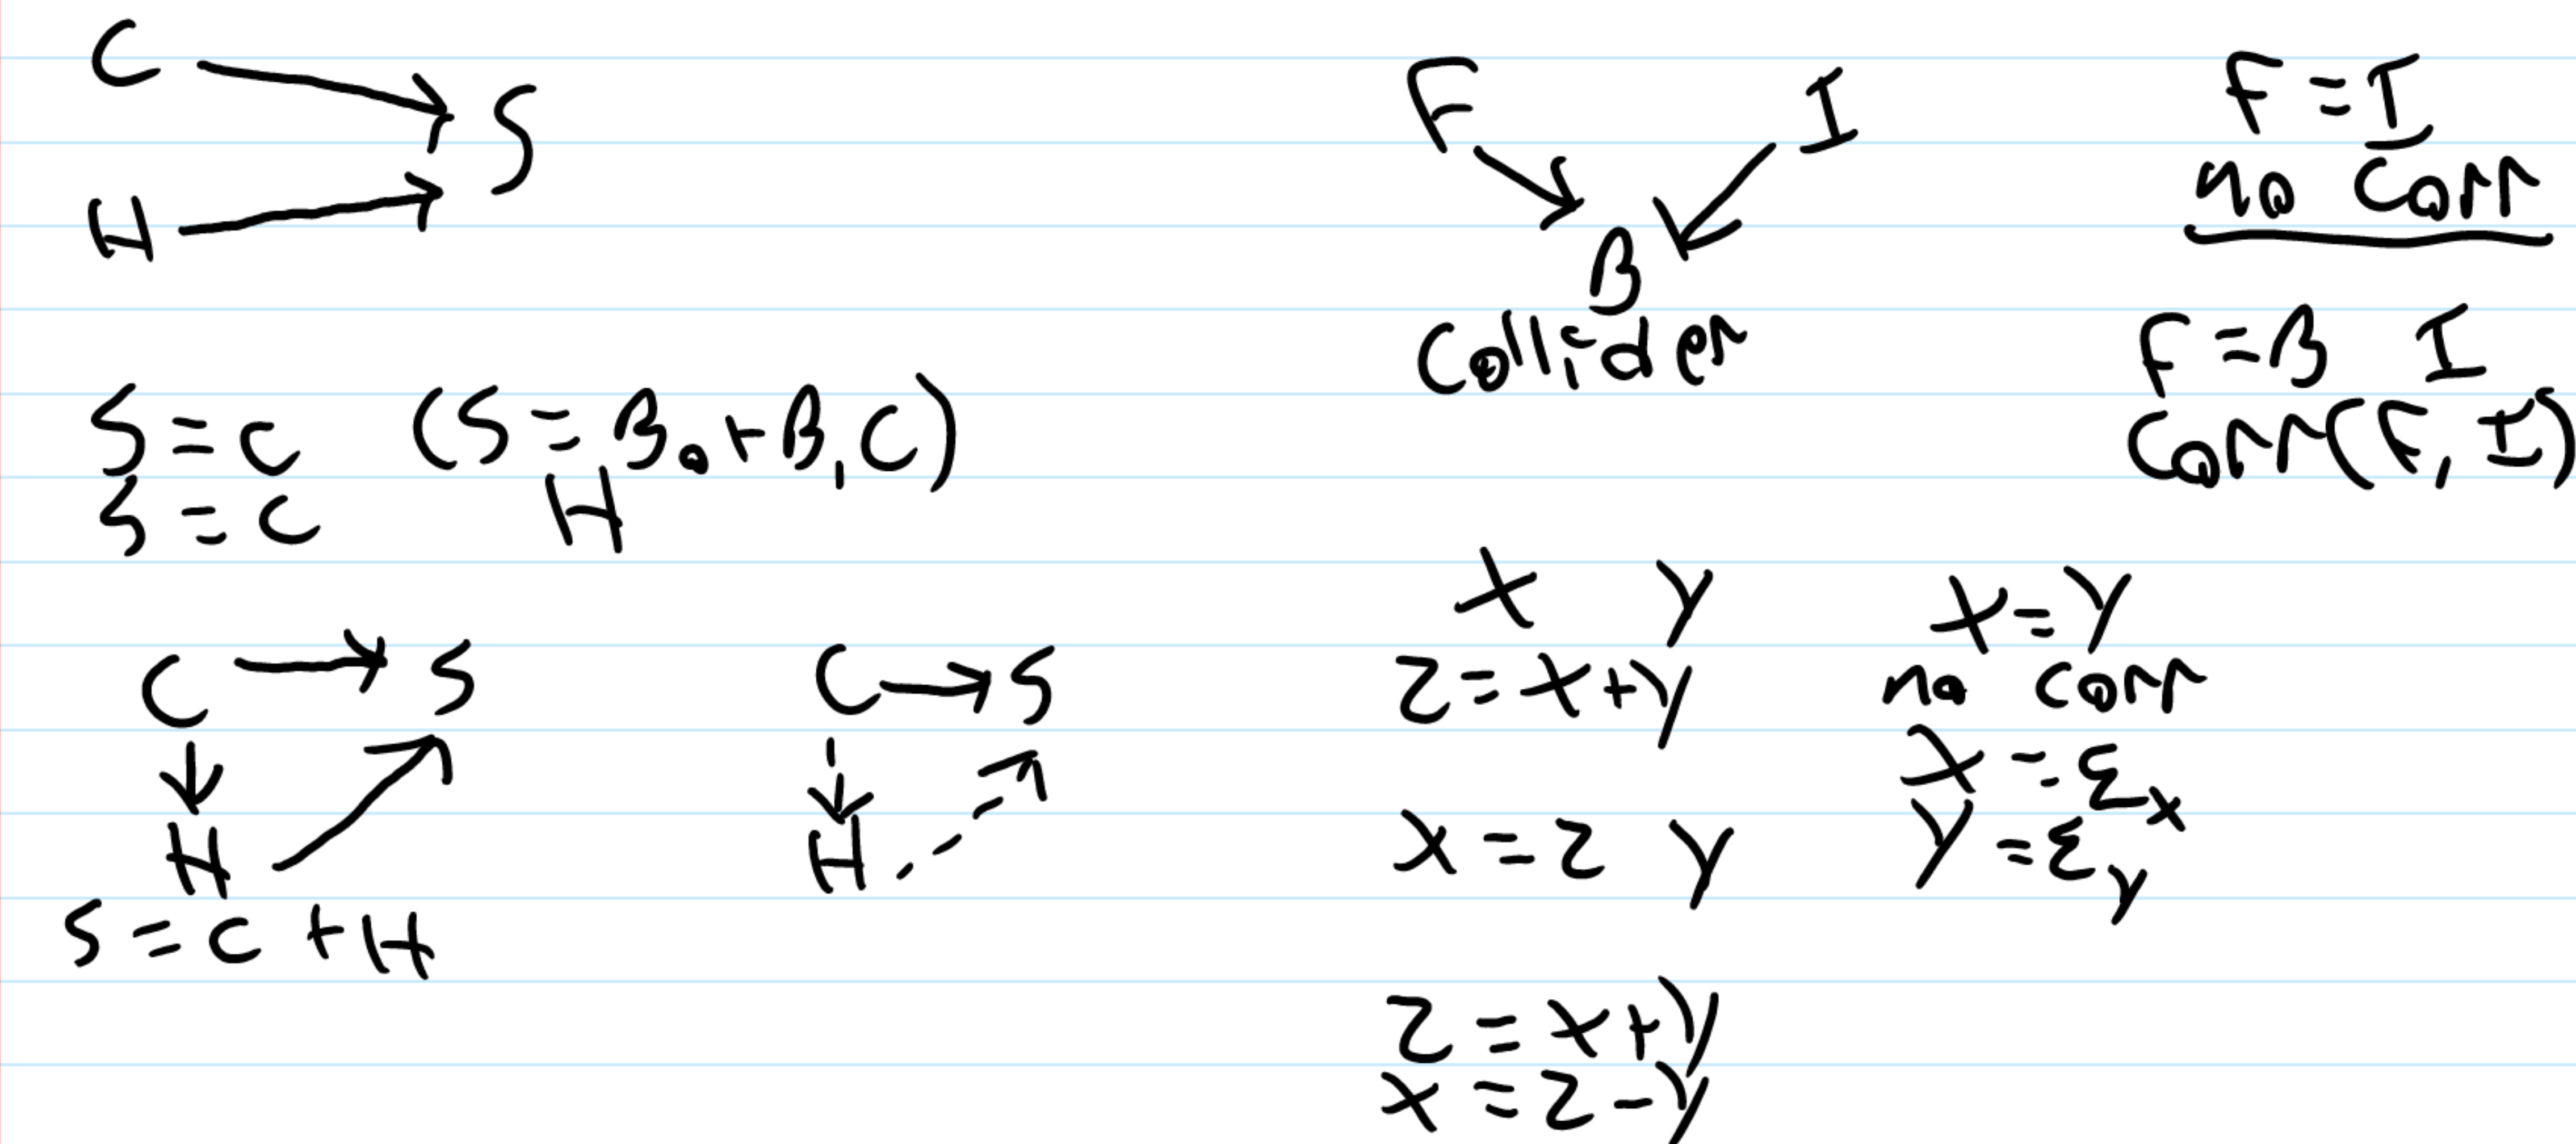 C → S
H →
S = C (S = B₀ + B₁C)
S = C H
C → S
↓
H ↗
S = C + H
C → S
⇣
H ⇢
F I
↘ ↙
B
Collider
F = I
no Corr
F = B I
Corr(F, I)
X Y
Z = X+Y
X = Z Y
Z = X+Y
X = Z-Y
X = Y
no corr
X = Ɛx
Y = Ɛy